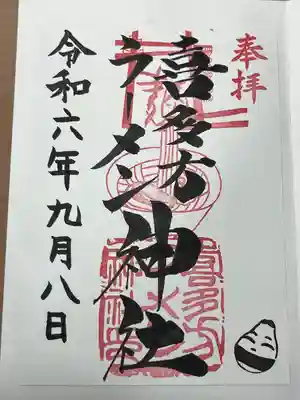 奉拝
喜多方
ラーメン神社
令和六年九月八日